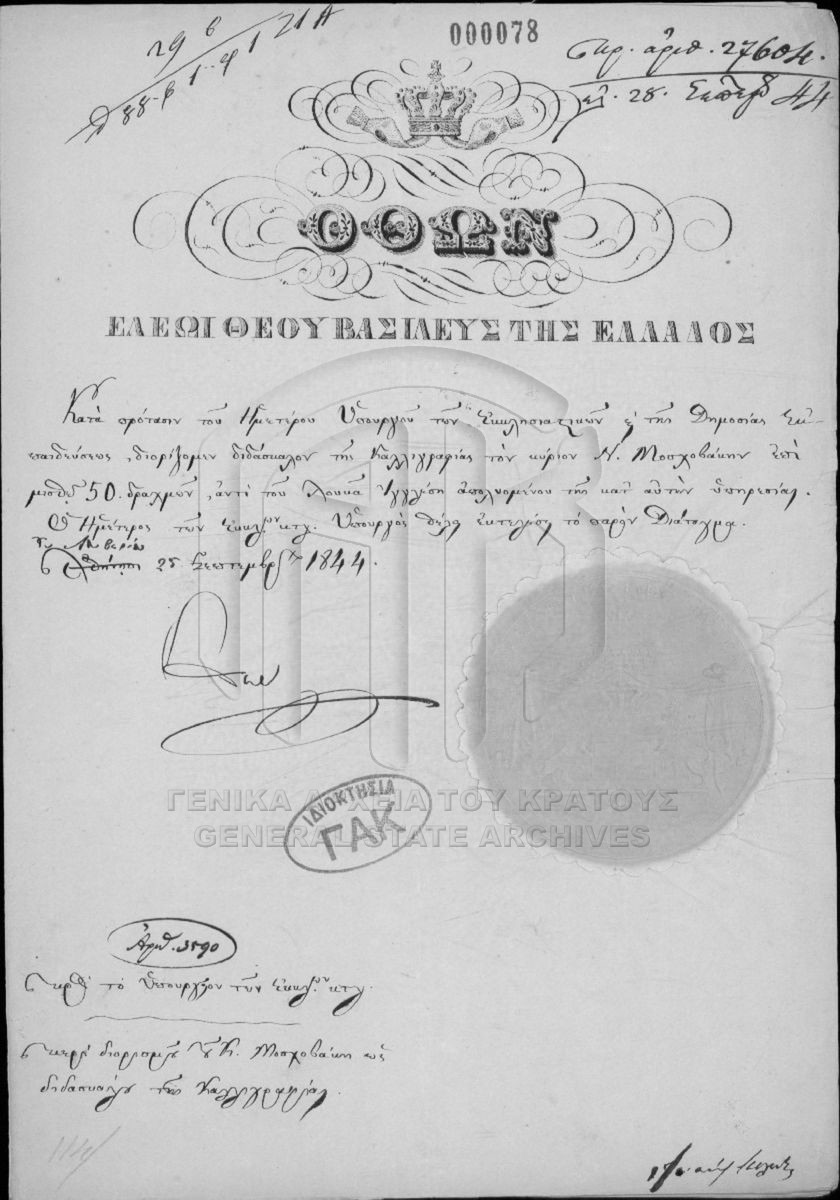 29 6 1 21 Α
88-β 1-φ
000078
πρ. ἀριθ. 27604.
28. Σεπτεμβ 44
ΟΘΩΝ
ΕΛΕΩΙ ΘΕΟΥ ΒΑΣΙΛΕΥΣ ΤΗΣ ΕΛΛΑΔΟΣ
Κατὰ πρότασιν τοῦ Ἡμετέρου Ὑπουργοῦ τῶν Ἐκκλησιαστικῶν ϗ τῆς Δημοσίας Ἐκ-
παιδεύσεως, διορίζομεν διδάσκαλον τῆς Καλλιγραφίας τὸν κύριον Ν. Μοσχοβάκην ἐπὶ
μισθῷ 50. δραχμῶν, ἀντὶ τοῦ Λουκᾶ ἀπολυομένου τῆς κατ' αὐτὴν ὑπηρεσίας.
Ὁ Ἡμέτερος τῶν Ἐκκλ.ῶν κτλ. Ὑπουργὸς θέλει ἐκτελέσῃ τὸ παρὸν Διάταγμα.
Ἀθήναις 25 Σεπτεμβρίου 1844.
Ὄθων
ΙΔΙΟΚΤΗΣΙΑ
ΓΑΚ
ΓΕΝΙΚΑ ΑΡΧΕΙΑ ΤΟΥ ΚΡΑΤΟΥΣ
GENERAL STATE ARCHIVES
Ἀριθ. 3590
πρὸς τὸ Ὑπουργεῖον τῶν Ἐκκλ.ῶν κτλ.
περὶ διορισμοῦ τοῦ Κ. Μοσχοβάκη ὡς
διδασκάλου τῆς Καλλιγραφίας